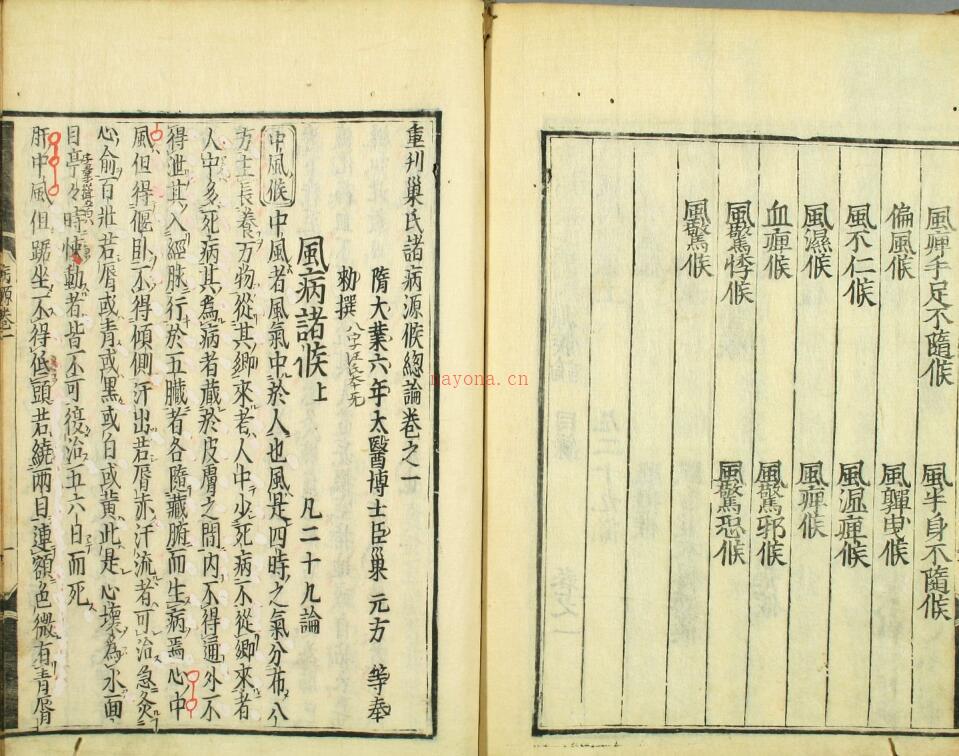 風痺手足不隨候　風半身不隨候
偏風候　風軃曳候
風不仁候　風濕痺候
風濕候　風痺候
血痺候　風驚邪候
風驚悸候　風驚恐候
風驚候
重刊巢氏諸病源候總論卷之一
隋大業六年太醫博士臣巢元方等奉
勑撰
風病諸候上　凡二十九論
中風候中風者風氣中於人也風是四時之氣分布八
方主長養万物從其郷來者人中少死病不從郷來者
人中多死病其為病者藏於皮膚之間內不得通外不
得泄其入經脉行於五臓者各隨藏腑而生病焉心中
風但得偃卧不得傾側汗出若脣赤汗流者可治急灸
心俞百壯若脣或青或黑或白或黃此是心壞為水面
目亭々時悚動者皆不可復治五六日而死
肝中風但踞坐不得低頭若繞兩目連額色微有青脣
病源卷一
一
nayona.cn